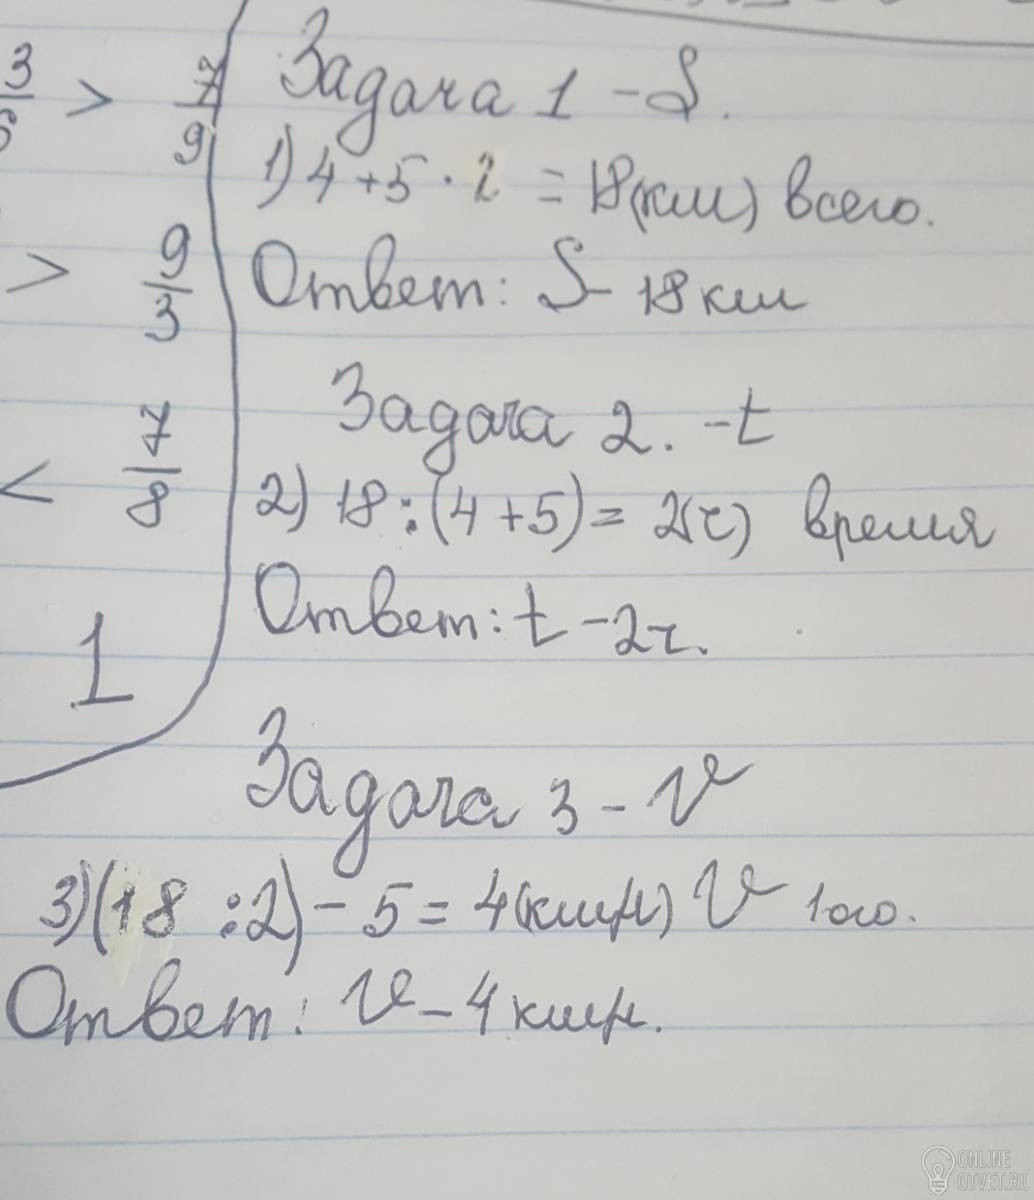 3/
>
7/9
>
9/3
<
7/8
1
Задача 1 - S.
1) 4 + 5 · 2 = 18(км) всего.
Ответ: S - 18 км
Задача 2. - t
2) 18 : (4 + 5) = 2(ч) время
Ответ: t - 2ч.
Задача 3 - V
3) (18 : 2) - 5 = 4(км/ч) V 1ого.
Ответ: V - 4 км/ч.
ONLINE
OTVET.RU